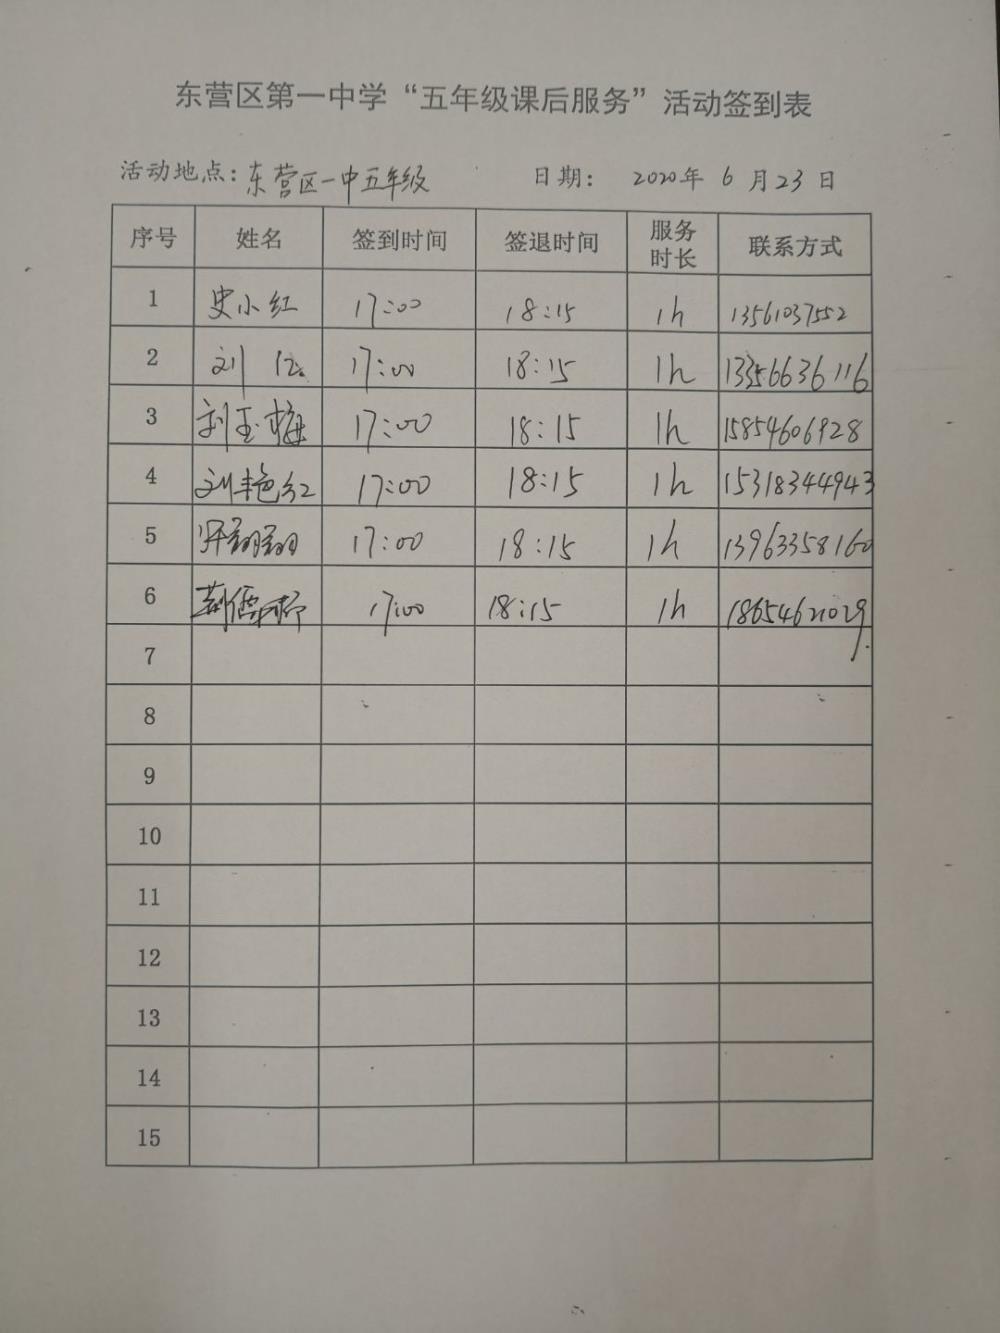 东营区第一中学“五年级课后服务”活动签到表
活动地点：东营区一中五年级 日期： 2020年 6 月 23 日
序号 姓名 签到时间 签退时间 服务时长 联系方式
1 史小红 17:00 18:15 1h 13561037552
2 刘 17:00 18:15 1h 13356636116
3 刘玉梅 17:00 18:15 1h 15854606928
4 刘艳红 17:00 18:15 1h 15318344943
5 翔翔 17:00 18:15 1h 13963358160
6 17:00 18:15 1h 18654621029
7
8
9
10
11
12
13
14
15